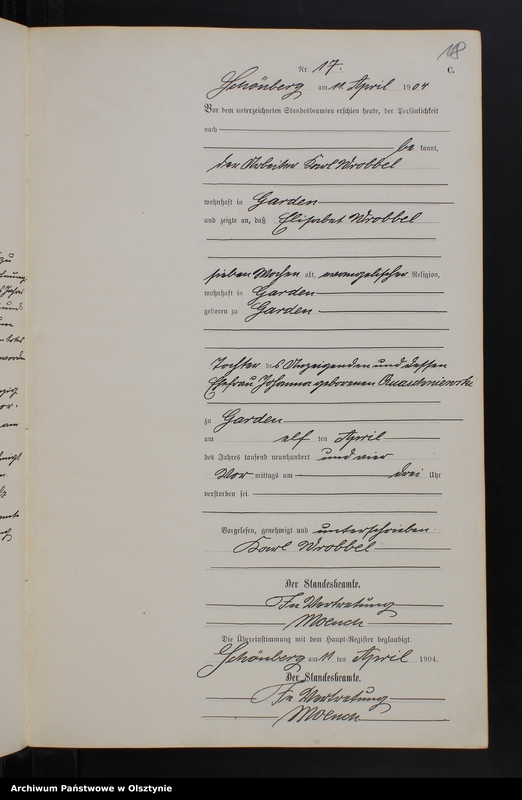 18
Nr. 17.
C.
Schönberg am 11. April 1904
Vor dem unterzeichneten Standesbeamten erschien heute, der Persönlichkeit
nach
be kannt,
der Arbeiter Karl Wrobbel
wohnhaft in Garden
und zeigte an, daß Elisabet Wrobbel
sieben Wochen alt, evangelischer Religion,
wohnhaft in Garden
geboren zu Garden
Tochter des Anzeigenden und dessen
Ehefrau Johanna geborenen
zu Garden
am elf ten April
des Jahres tausend neunhundert und vier
Vor mittags um drei Uhr
verstorben sei.
Vorgelesen, genehmigt und unterschrieben.
Karl Wrobbel
Der Standesbeamte.
In Vertretung
Moench
Die Übereinstimmung mit dem Haupt-Register beglaubigt.
Schönberg am 11 ten April 1904.
Der Standesbeamte.
In Vertretung
Moench
Archiwum Państwowe w Olsztynie